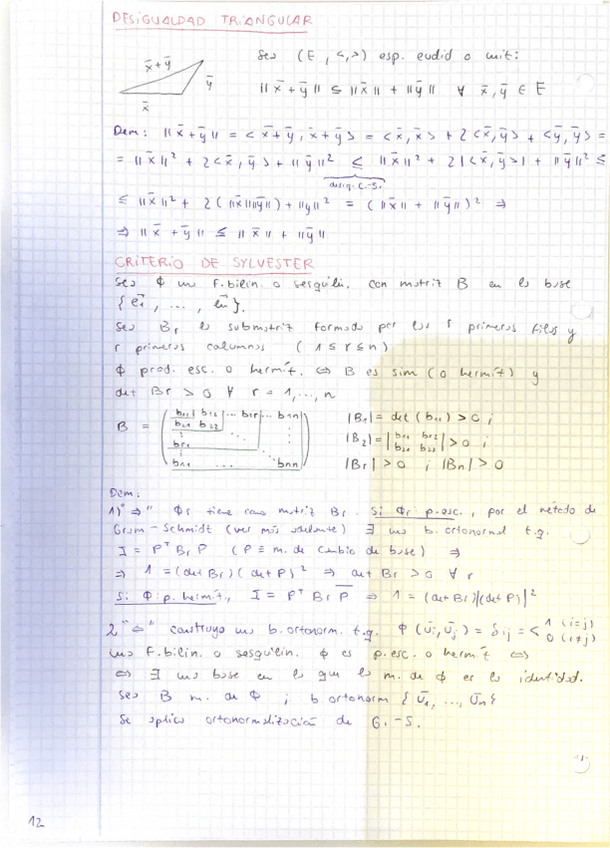 DESIGUALDAD TRIANGULAR
x̄+ȳ
ȳ
x̄
Sea (E, <,>) esp. euclid o unit:
||x̄+ȳ|| ≤ ||x̄|| + ||ȳ|| ∀ x̄,ȳ ∈ E
Dem: ||x̄+ȳ|| = <x̄+ȳ, x̄+ȳ> = <x̄,x̄> + 2<x̄,ȳ> + <ȳ,ȳ> =
= ||x̄||² + 2<x̄,ȳ> + ||ȳ||² ≤ ||x̄||² + 2|<x̄,ȳ>| + ||ȳ||² ≤
desig. C.-S.
≤ ||x̄||² + 2(||x̄||||ȳ||) + ||y||² = (||x̄|| + ||ȳ||)² ⇒
⇒ ||x̄+ȳ|| ≤ ||x̄|| + ||ȳ||
CRITERIO DE SYLVESTER
Sea ϕ una f. bilin. o sesquili. con matriz B en la base
{ē1, ..., ēn}.
Sea Br la submatriz formada por las r primeras filas y
r primeras columnas (1≤r≤n)
ϕ prod. esc. o hermít. ⇔ B es sim (o hermít) y
det Br > 0 ∀ r = 1,...,n
B = ( b11 b12 ... b1r ... b1n
b21 b22
br1
bn1 ... bnn )
|B1| = det (b11) > 0 ;
|B2| = | b11 b12 b21 b22 | > 0 ;
|Br| > 0 ; |Bn| > 0
Dem:
1) "⇒" ϕr tiene como matriz Br. Si ϕr p. esc., por el método de
Gram-Schmidt (ver más adelante) ∃ una b. ortonormal t.q.
I = Pᵀ Br P (P ≡ m. de cambio de base) ⇒
⇒ 1 = (det Br)(det P)² ⇒ det Br > 0 ∀ r
Si ϕ: p. hermít., I = Pᵀ Br P̄ ⇒ 1 = (det Br)|(det P)|²
2 "⇐" construyo una b. ortonorm. t.q. ϕ(ūi, ūj) = δij = < 1 (i=j) 0 (i≠j)
una f. bilin. o sesquilin. ϕ es p. esc. o hermít ⇔
⇔ ∃ una base en la que la m. de ϕ es la identidad.
Sea B m. de ϕ ; b ortonorm {ū1, ..., ūn}
Se aplica ortonormalización de G.-S.
12